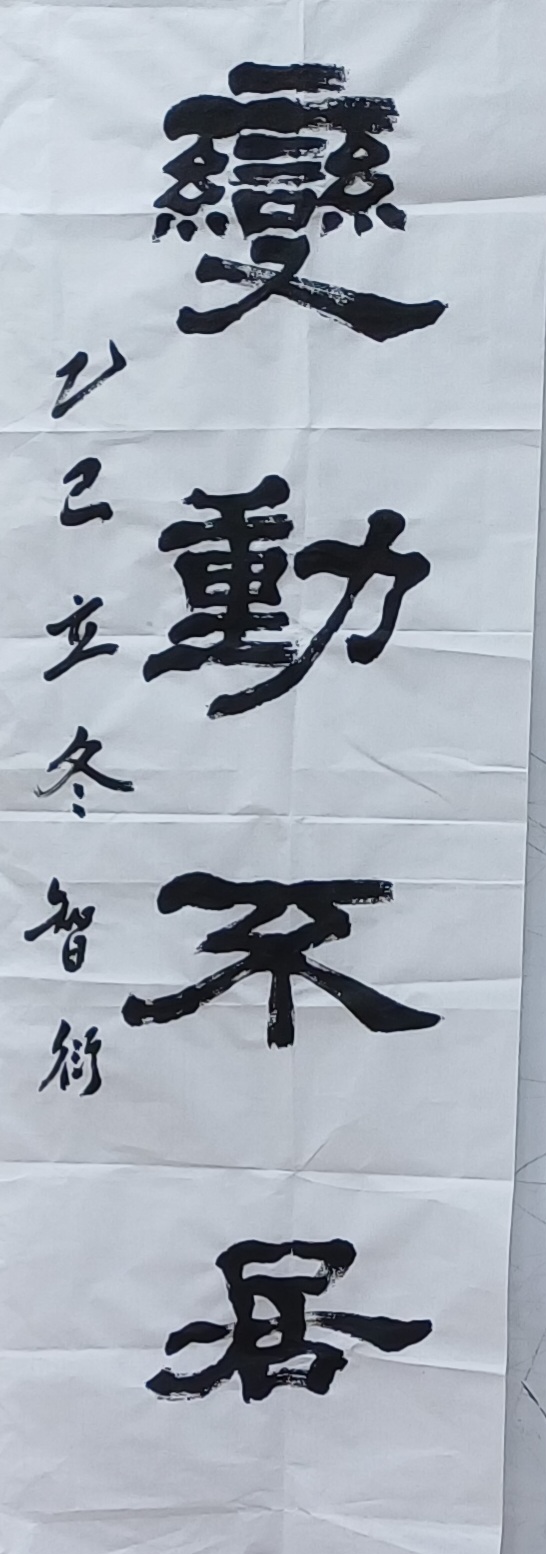 變動不居
乙巳立冬智衍